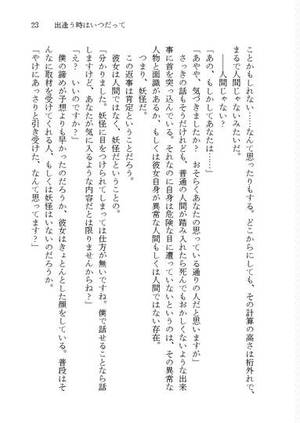 23　出逢う時はいつだって
ことかもしれない……なんて思ったりもする。どこからにしても、その計算の高さは桁外れで、
まるで人間じゃないみたいだ。
――人間じゃない？
「あの、もしかしてあなたは……」
「あやや、気づきましたか……おそらくあなたの思っている通りの人だと思いますが」
さっきの話もそうだけれども、普通の人間が踏み入れたら死んでもおかしくないような出来
事に首を突っ込んでいる。それなのに彼女自身は危険な目に遭っていないというのは、その異常な
人物と面識があるか、もしくは彼女自身が異常な人間もしくは人間ではない存在。
つまり、妖怪だ。
この返事は肯定ということだろう。
彼女は人間ではなく、妖怪だということの。
「分かりました。妖怪に目をつけられてしまっては仕方が無いですね。僕で話せることなら話
しますけど、あなたが気に入るような内容だとは限りませんからね？」
「え？　いいのですか？」
僕の諦めが予想よりも早かったのだろうか、彼女はきょとんとした顔をしている。普段はそ
んなに取材を受けてくれる人、もしくは妖怪はいないのだろうか。
「やけにあっさりと引き受けた、なんて思ってます？」